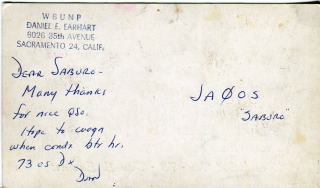 W6UNP
DANIEL E. EARHART
6026 35th AVENUE
SACRAMENTO 24, CALIF.
DEAR SABURO-
MANY thanks
for nice QSO.
Hope to cuagn
when condx btr hr.
73 es Dx
Dan
JAØOS
"SABURO"